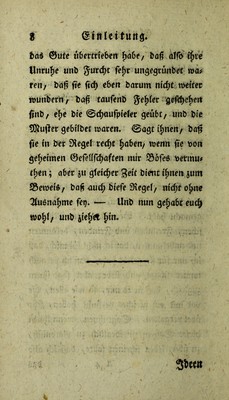 8 Einleitung.
das Gute übertrieben habe, daß also ihre
Unruhe und Furcht sehr ungegründet wa-
ren, daß sie sich eben darum nicht weiter
wundern, daß tausend Fehler geschehen
sind, ehe die Schauspieler geübt, und die
Muster gebildet waren. Sagt ihnen, daß
sie in der Regel recht haben, wenn sie von
geheimen Gesellschaften nur Böses vermu-
then; aber zu gleicher Zeit dient ihnen zum
Beweis, daß auch diese Regel, nicht ohne
Ausnahme sey. — Und nun gehabt euch
wohl, und ziehet hin.
Ideen